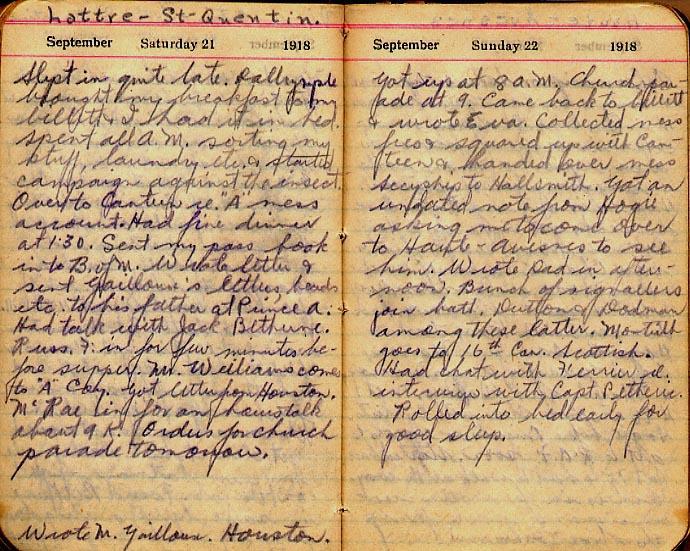 Lattre - St-Quentin.
September Saturday 21 1918
Slept in quite late. Dalrymple
brought my breakfast to my
billet & I had it in bed.
spent all A.M. sorting my
stuff, laundry etc & started
campaign against the insect.
Over to Canteen re. 'A' mess
account. Had fine dinner
at 1:30. Sent my pass book
in to B. of M. Wrote letter &
sent Gailloux's letters, beads
etc. to his father at Prince A.
Had talk with Jack Bethune.
Russ. F. in for few minutes be-
fore supper. Mr. Williams comes
to "A" Coy. Got letter from Houston.
McRae in for an hours talk
about 9 K. Orders for church
parade tomorrow.
Wrote M. Gailloux. Houston.
September Sunday 22 1918
Got up at 8 a.m. Church pa-
rade at 9. Came back to billett
& wrote Eva. Collected mess
fees & squared up with Can-
teen & handed over mess
secyship to Hallsmith. Got an
undated note from Hogie
asking me to come over
to Haute-Avesnes to see
him. Wrote Dad in after-
noon. Bunch of signallers
join batt. Dutton & Dodman
among these latter.
goes to 16th Can. Scottish.
Had chat with Ferrier re.
interview with Capt. Petherie.
Rolled into bed early for
good sleep.